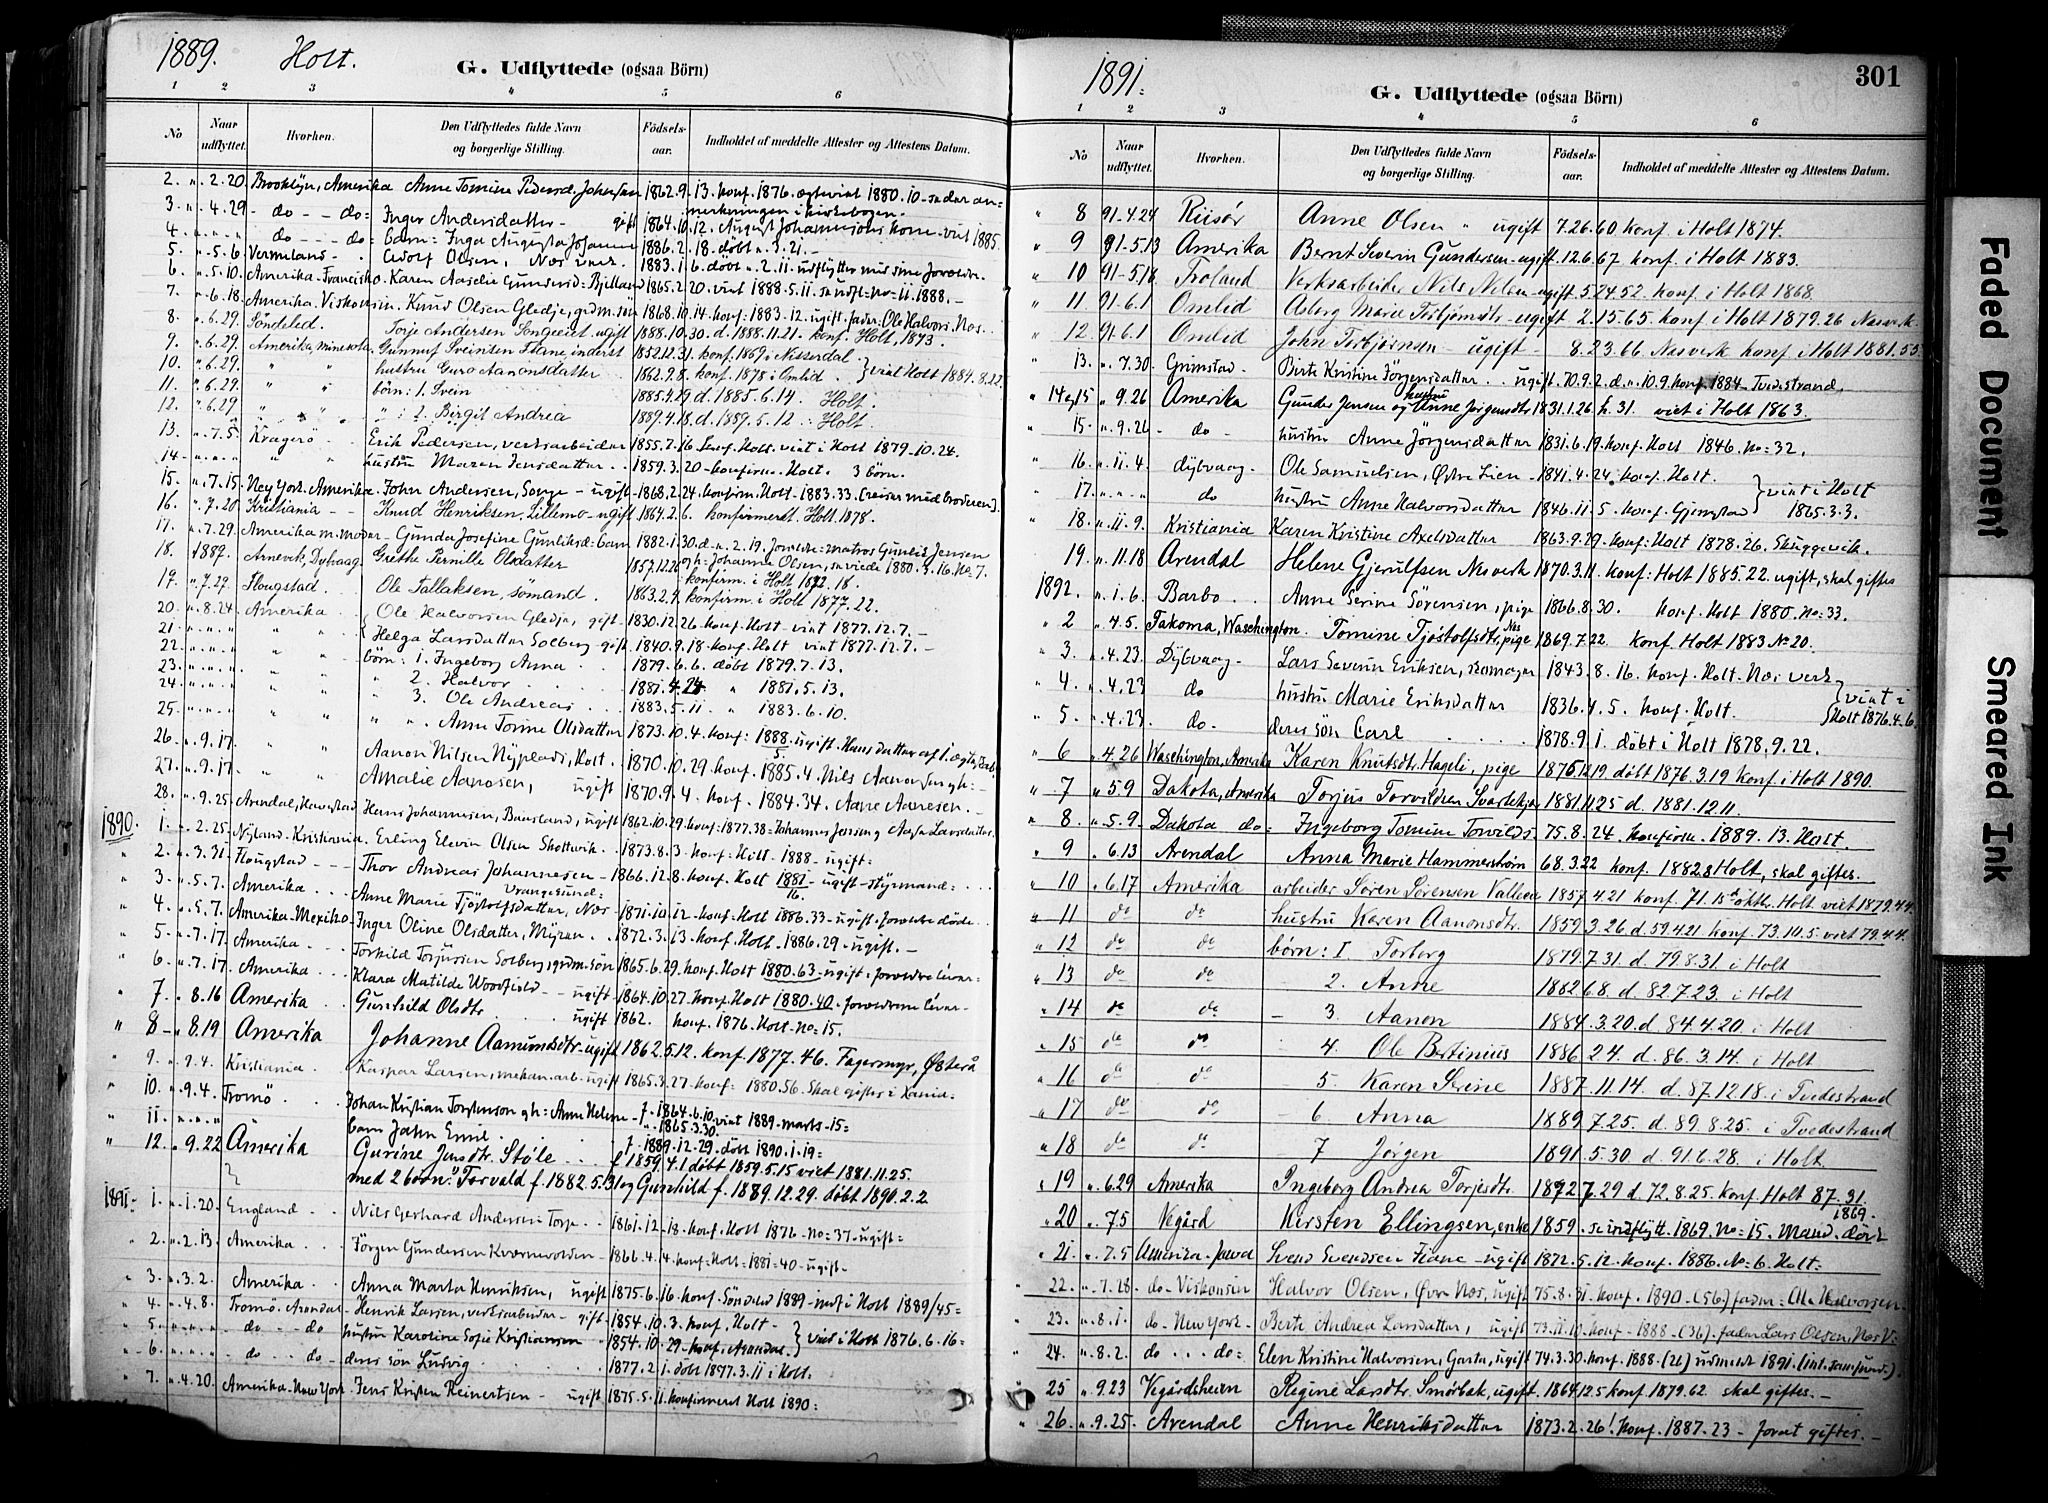 1889. Holt.
G. Udflyttede (ogsaa Börn)
1 2 3 4 5 6
No Naar udflyttet. Hvorhen. Den Udflyttedes fulde Navn og borgerlige Stilling. Födsels-aar. Indholdet af meddelte Attester og Attestens Datum.
2. „ 2.20. Brooklyn, Amerika Anne Tomine Pedersd. 1862.9.13. konf. 1876.
3. „ 4.29 - do - - do = Inger Andersdatter - gift 1864.10.12.
4. „ „ „ do - - do = barn: Inga Augusta Johanne 1886.2.18. döbt 3.21. -
5. „ 5.6 Vermeland - Adolf Olsen, Næs verk 1883.1.6. döbt „ 2.11. udflytter med sine forældre.
6. „ 5.10. Amerika-Francisko. Karen Amelie Gundersd. 1865.2.20. viet 1888.5.11. no = 11. 1888. -
7. „ 6.18. Amerika Viskonsin Knud Olsen Gledje, grdm. sön 1868.10.14. konf. 1883.12. ugift, fader: Ole Halvors. Næs.
8. „ 6.29. Söndeled. Torje Andersen Songeeiet ugift 1888.10.30. d. 1888.11.21. konf. Holt, 1873.
9. „ 6.29. Amerika, minesota. Gunnuf Sveinsen Fiane, inderst 1852.12.31. konf. 1867 i Nisserdal
10. „ 6.29. „ „ hustru Guro Aanonsdatter 1862.9.8. konf. 1878 i Omlid. } viet Holt 1884.8.22.
11. „ 6.29 „ „ börn: 1. Svein 1885.4.19 d. 1885.6.14. Holt.
12. „ 6.29 „ „ „ : 2. Birgit Andrea 1889.4.18. d. 1859.5.12 : Holt.
13. „ 7.5. Kragerö - Erik Pedersen, verksarbeider 1855.7.16. konf. Holt, viet i Holt 1879.10.24.
14. „ „ „ „ hustru Maren Jensdatter 1859.3.20 - konfirm. Holt. 3 börn.
15. „ 7.15. Ney York. Amerika. John Andersen, Songe - ugift 1868.2.24. konfirm. Holt - 1883.33. (reiser med broderen).
16. „ 7.20 Kristiania - - Knud Henriksen, Lillemo - ugift 1864.2.6. konfirmeret. Holt. 1878.
17. „ 7.29. Amerika m. moder - Gunda Josefine Gunleiksd: barn 1882.1.30. d. 2.19. Forældre = matros Gunleik Jensen
18. 1887. Arnevik, Dybvaag Grethe Pernille Olsdatter 1857.12.26 konfirm. i Holt 1872.18.
19. „ 7.29. Flougstad. Ole Tallaksen, sömand. 1863.2.9. konfirm. i Holt 1877.22.
20. „ 8.24. Amerika. Ole Halvorsen Gledje, gift 1830.12.26. konf. Holt - viet 1877.12.7. -
21. „ „ „ „ „ Helga Larsdatter Solberg gift 1840.9.18. konf. Holt viet 1877.12.7. -
22. „ „ „ „ „ börn: 1. Ingeborg Anna 1879.6.6. döbt 1879.7.13.
23. „ „ „ „ „ „ 2. Halvor 1881.4.24 „ 1881.5.13.
24. „ „ „ „ „ „ 3. Ole Andreas 1883.5.11. „ 1883.6.10.
25. „ „ „ „ „ „ Anne Tomine Olsdatter 1873.10.4. konf: 1888. ugift. Hans datter af 1. ægtesk.
26. „ 9.17. „ „ Aanon Nilsen Nyplads, Holt. 1870.10.29. konf. 1885.4.
27. „ 9.17. „ „ Amalie Aanosen, ugift 1870.9.4. konf. 1884.34. Aane Aanesen. -
28. „ 9.25. Arendal, Hans Johannesen, ugift 1862.10.29. konf. 1877.38 =
1890. 1. „ 2.25. Nyland - Kristiania. Erling Elevin Olsen Skottevik. 1873.8.3. konf. Holt. 1888 - ugift =
2. „ 3.31. Flougstad - - - Thor Andreas Johannesen - 1866.12.8. konf. Holt 1881 - ugift - styrmand =
3. „ 5.7. Amerika . . . Anne Marie Tjöstolfsdatter, Næs 1871.10.12 - konf. Holt 1886.33 - ugift - forældre döde
4. „ 5.7. Amerika - Mexiko. Inger Oline Olsdatter, Myran. 1872.3.13. konf. Holt - 1886.29 - ugift. -
5. „ 7.17. Amerika. Torkild Torjussen Solberg, grdm. sön 1865.6.29. konf. Holt 1880.63 - ugift, forældre lever =
6. „ 7.17. Amerika Klara Matilde Woodfield - ugift 1864.10.27. konf. Holt 1880.40. forældrene lever -
7. „ 8.16 Amerika Gunhild Olsdtr. ugift 1862. konf. 1876. Holt - no = 15.
8 - „ 8.19 Amerika Johanne Aamundsdtr. ugift 1862.5.12. konf. 1877.46. Fagermyr, Østerå
9. „ 9.4. Kristiania. Kaspar Larsen, mekan. arb. ugift 1865.3.27 - konf = 1880.56. Skal giftes i Xania =
10. „ 9.4. Tromö Johan Kristian Torstenson gh = Anne Helene 7. 1864.6.10 „ 1865.3.30. viet 1889 - marts - 15 =
11. „ „ „ barn John Emil 7. 1889.12.29. döbt 1890.1.19 =
12. „ 9.22 Amerika Gurine Jensdtr. Støle f. 1859.4.1 døbt 1859.5.15 viet 1881.11.25.
med 2 børn: Torvald f. 1882.5.13 og Gunhild f. 1889.12.29. døbt 1890.2.2
1891 - 1. „ 1.20. England Nils Gerhard Andersen Torp 1861.12.18. konf. Holt 1876 - no = 37 - ugift =
2. „ 2.13. Amerika Jörgen Gundersen Kværnevolden - 1866.4.4. konf = Holt = 1881 - 40 - ugift -
3. „ 3.2. Amerika Anna Marta Henriksen, ugift 1875.6.16. konf. Söndeled 1889 - indf. i Holt 1889/45 =
4. „ 4.8. Tromö. Arendal. Henrik Larsen, verksarbeider - gift 1854.10.3. konf. Holt -
5. „ „ „ do - - do hustru Karoline Sofie Kristiansen 1854.10.29 - konf. Arendal. } viet i Holt 1876.6.16 -
6. „ „ „ do - - do - deres sön Ludvig 1877.2.1. döbt 1877.3.11 i Holt.
7. „ 4.20. Amerika - New York - Jens Kristen Reinertsen - ugift 1875.5.11. konfirmeret Holt 1890 =
1891. 301
G. Udflyttede (ogsaa Börn)
1 2 3 4 5 6
No Naar udflyttet. Hvorhen. Den Udflyttedes fulde Navn og borgerlige Stilling. Födsels-aar. Indholdet af meddelte Attester og Attestens Datum.
„ 8 91.4.24 Riisör Anne Olsen „ ugift 7.26.60 konf. i Holt 1874.
„ 9 91.5.13 Amerika Bernt Severin Gundersen - ugift 12.6.67 konf. i Holt 1883.
„ 10 91.5.18 Froland Verksarbeider Nils Nilsen ugift 5.74.52. konf. i Holt 1868
„ 11 91.6.1 Omlid Asborg Marie Torbjørnsdtr. - ugift 2.15.65 konf. i Holt 1879.26 Næsverk.
„ 12 91.6.1 Omlid John Torbjørnsen - ugift - 8.23.66 Næsverk konf. i Holt 1881.55.
„ 13. „ 7.30 Grimstad - Birte Kristine Jörgensdatter ugift. 70.9.2. d. „ 10.9. konf. 1884. Tvedestrand.
„ 14 og 15 „ 9.26 Amerika Gunder Jensen og hustru Anne Jørgensdtr 1831.1.26 h. 31. viet i Holt 1863.
„ 15 „ 9.26 - do - hustru Anne Jörgensdatter 1831.6.19. konf. Holt 1846. no = 32.
„ 16. „ 11.4. Dybvaag - Ole Samuelsen, Østre Lien - 1841.4.24. konf. Holt.
„ 17. „ „ „ do hustru Anne Halvorsdatter 1846.11.5. konf. Gjerstad } viet i Holt 1865.3.3.
„ 18. „ 11.9. Kristiania Karen Kristine Axelsdatter 1863.9.29. konf. Holt 1878.26. Skuggevik.
19. „ 11.18 Arendal Helene Gjerulfsen Næsverk 1870.3.11. konf. Holt 1885.22. ugift, skal giftes
1892. „ 1.6. Barbo Anne Serine Sörensen, pige 1866.8.30. konf. Holt 1880. no = 33.
„ 2 „ 4.5. Takoma, Waschington. Tomine Tjöstolfsdtr. Næs pige 1869.7.22 konf. Holt 1883 No 20.
„ 3. „ 4.23. Dybvaag - Lars Severin Eriksen, skomager 1843.8.16. konf. Holt - Næs verk
„ 4. „ 4.23 do hustru Marie Eriksdatter 1836.4.5. konf. Holt. } viet i Holt 1876.4.6
„ 5. „ 4.23. do. deres sön Carl 1878.9.1. döbt i Holt 1878.9.22.
„ 6 „ 4.26 Waschington, Amerika Karen Knutsdtr. Hageli, pige 1875.12.19. døbt 1876.3.19 konf. i Holt 1890.
„ 7 „ 5.9 Dakota, Amerika Torjus Torvildsen 1881.11.25 d. 1881.12.11.
„ 8. „ 5.9. Dakota do = Ingeborg Tomine Torvilds. 75.8.24. konfirm. 1889.13. Holt.
„ 9 „ 6.13 Arendal Anna Marie Hammerstrøm 68.3.22 konf. 1882.8 Holt, skal giftes.
„ 10 „ 6.17 Amerika arbeider Søren Sørensen 1857.4.21 konf. 71. 15de oktbr. Holt viet 1879.4.4.
„ 11 do do hustru Karen Aanonsdtr. 1859.3.26 d. 59.4.21 konf. 73.10.5. viet 79.4.4.
„ 12 do do børn: 1 Torborg 1879.7.31. d. 79.8.31. i Holt
„ 13 do do 2. Anne 1882.6.8. d. 82.7.23. i Holt
„ 14 do do - 3. Aanon 1884.3.20. d. 84.4.20. i Holt
„ 15 do do 4. Ole Bertinius 1886.2.4. d. 86.3.14. i Holt
„ 16 do do 5. Karen Serine 1887.11.14. d. 87.12.18. i Tvedestrand
„ 17 do do - 6 Anna 1889.7.25. d. 89.8.25. i Tvedestrand
„ 18 do do - 7 Jørgen 1891.5.30. d. 91.6.28. i Holt
„ 19 „ 6.29 Amerika Ingeborg Andrea Torjesdtr. 1872.7.29 d. 72.8.25. konf. Holt 87.31.
„ 20 „ 7.5 Vegård Kirsten Ellingsen, enke 1859. se indflytt. 1869. no = 15. Mand. död
„ 21 „ 7.5 Amerika - Svend Svendsen Fiane - ugift 1872.5.12. konf. 1886. No = 6. Holt =
22. „ 7.28. do - Viskonsin Halvor Olsen, Øvre Næs, ugift 75.8.31. konf. 1890 - (56) fader = Ole Halvorsen.
„ 23. „ 8.1. do - New York - Berte Andrea Larsdatter, ugift 73.11.10. konf - 1888 - (36). fader Lars Olsen, Næs V.
„ 24. „ 8.2. do . . . do = Elen Kristine Halvorsen, Garta, ugift 74.3.30. konf. 1888. (26) udmeldt 1891.
„ 25 „ 9.23 Vegårdsheien Regine Larsdtr. Smörbæk, ugift. 1864.12.5 konf. 1879.62. skal giftes. -
„ 26. „ 9.25. Arendal Anne Henriksdatter 1873.2.26! konf. 1887.23 - forat giftes. -
Faded Document
Smeared Ink